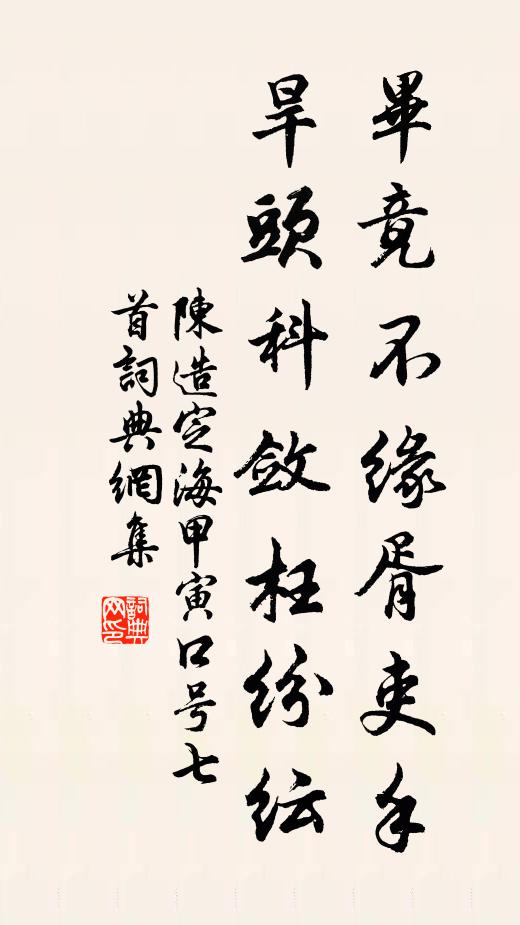 畢竟不緣胥吏手
旱頭科斂枉紛紜
陳造定海甲寅口号七
首詞典網集
詞典
网印